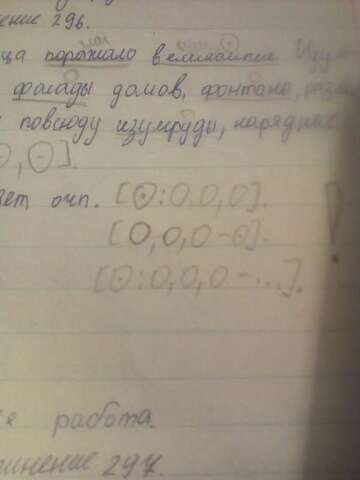 ение 296.
ца поражало великолепие Изум
фасады домов, фонтаны,
повсюду изумруды, нарядные
⊙, ⊖].
ает, очп. [⊙:О,О,О].
[О,О,О-⊖].
[⊙:О,О,О-...].
!
я работа.
жнение 297.